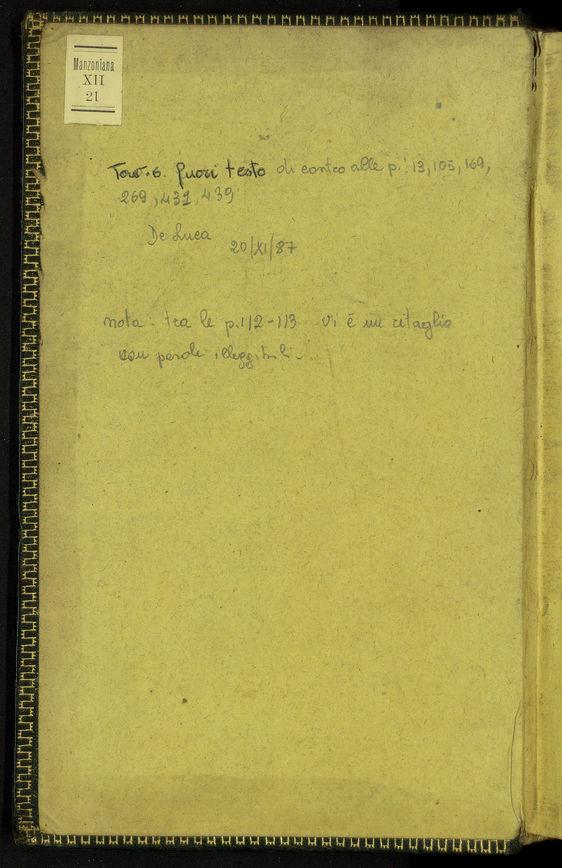 Manzoniana
XII
21
Tav. 6. fuori testo di contro alle p.: 13, 105, 169,
269, 431, 439
De Luca
20/XI/87
nota: tra le p. 112-113 vi è un ritaglio
con parole illeggibili.